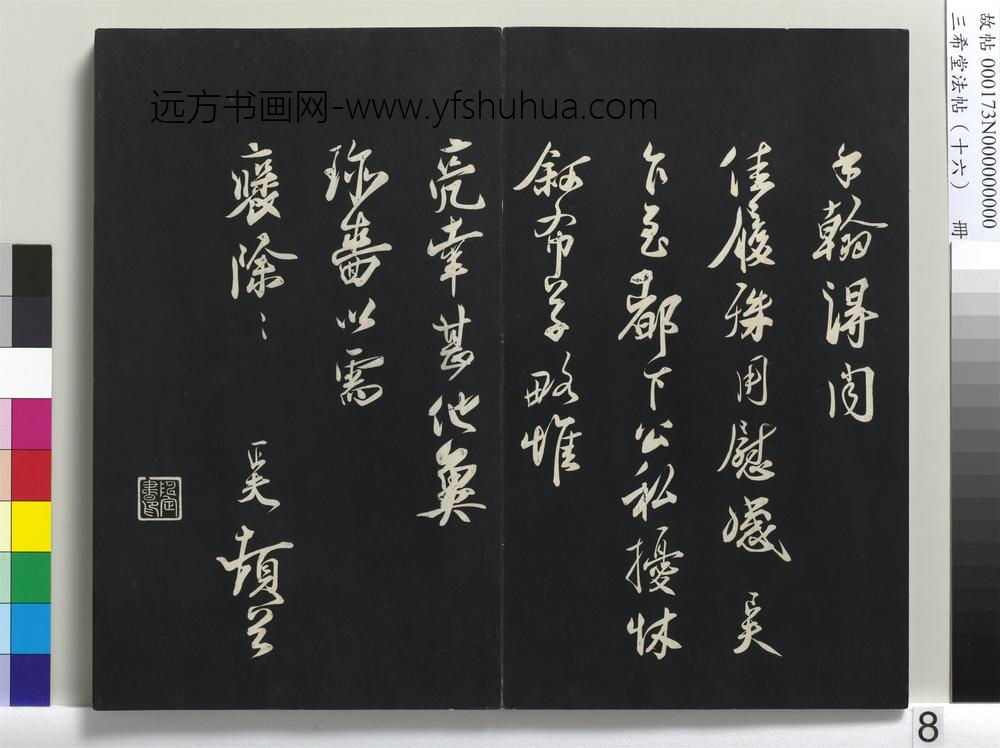 故帖 000173N000000000
三希堂法帖（十六） 冊
远方书画网-www.yfshuhua.com
手翰得闻
佳履殊用慰感 吴
久至鄙下公私擾
叙布草略惟
亮幸甚他冀
珍嗇以需
褒除〻 吴 頓首
8